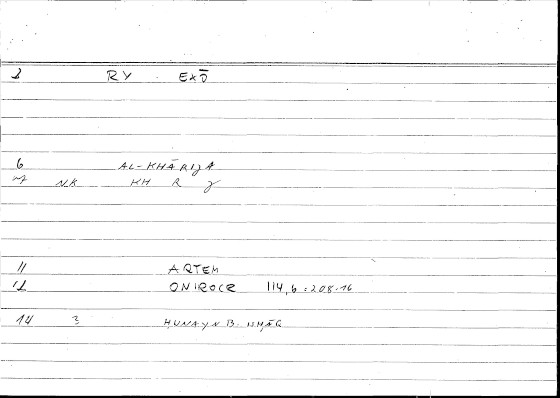 2 RY EXŌ
6 AL-KHĀRIJA
NK KH R J
11 ARTEM
12 ONIROCR 114,6 : 208.16
14 3 HUNAYN B. ISḤĀQ